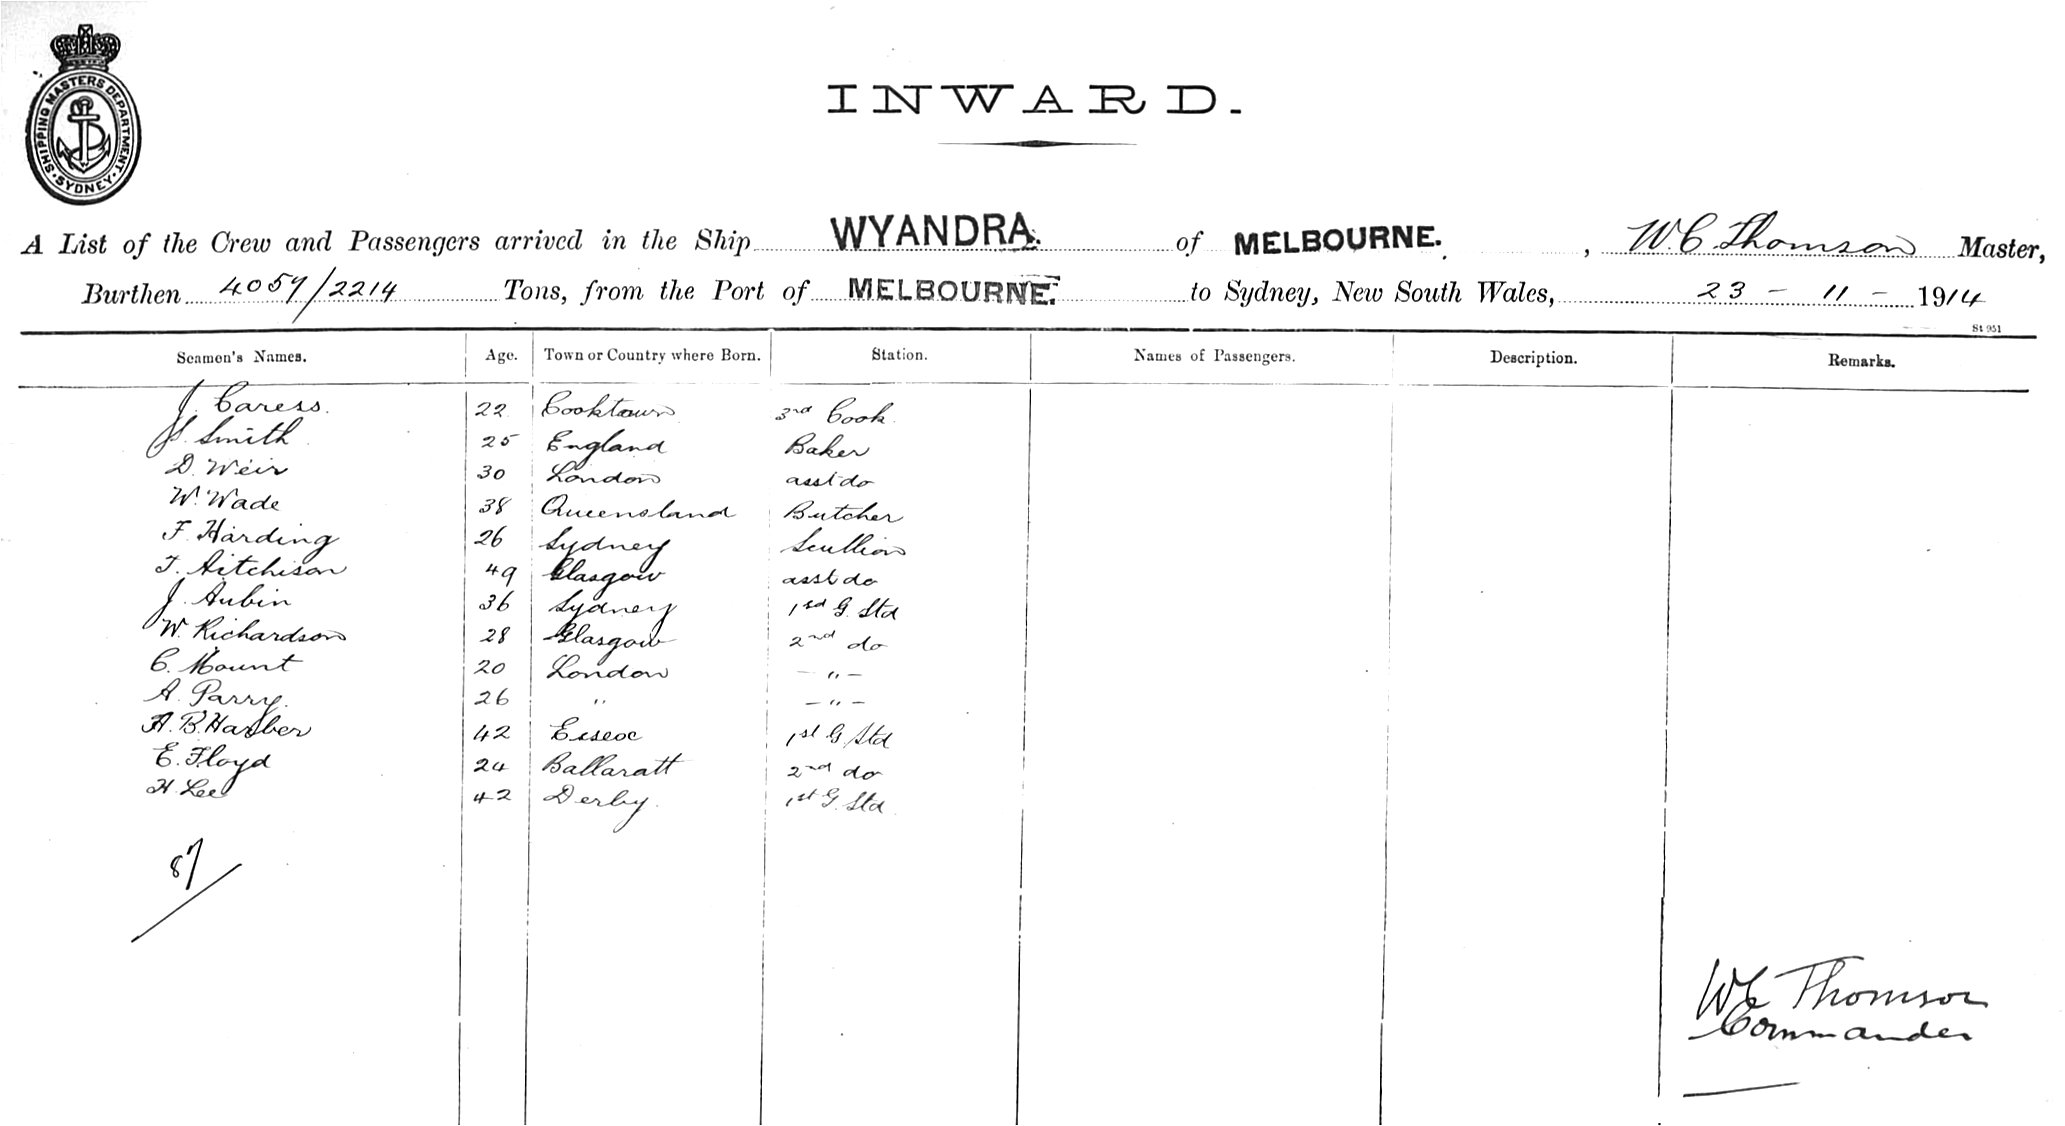 SHIPPING MASTERS DEPARTMENT. SYDNEY.
INWARD.
A List of the Crew and Passengers arrived in the Ship WYANDRA. of MELBOURNE. , W. C. Thomson Master,
Burthen 4057/2214 Tons, from the Port of MELBOURNE. to Sydney, New South Wales, 23 - 11 - 1914
St 951
Seamen's Names. Age. Town or Country where Born. Station. Names of Passengers. Description. Remarks.
J. Caress. 22 Cooktown 3rd Cook
Smith 25 England Baker
D. Weir 30 London asst do
W. Wade 38 Queensland Butcher
F. Harding 26 Sydney Scullion
T. Aitchison 49 Glasgow asst do
J. Aubin 36 Sydney 1sd G. Std
W. Richardson 28 Glasgow 2nd do
C. Mount 20 London - " -
A. Parry. 26 " - " -
A. B. Harber 42 1st G Std
E. Floyd 24 Ballaratt 2nd do
H. Lee 42 Derby. 1st G. Std
87
W C Thomson
Commander